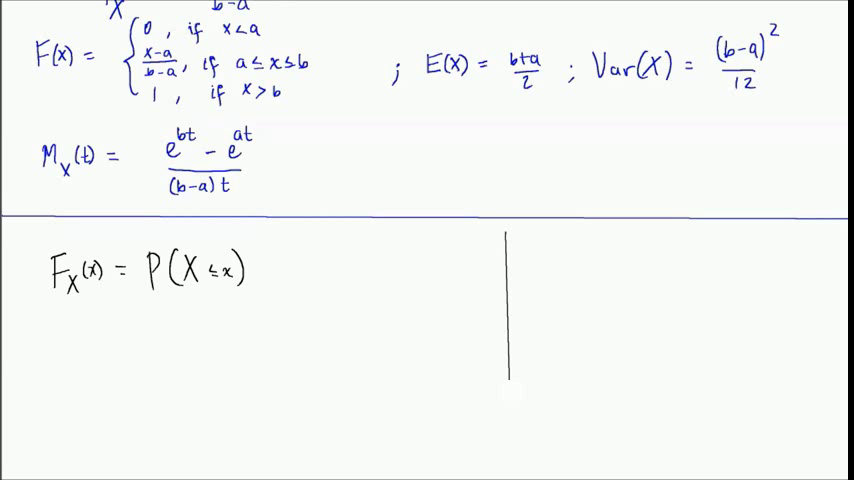 X b-a
F(x) = { 0 , if x<a
x-a/b-a, if a≤x≤b ; E(X) = b+a/2 ; Var(X) = (b-a)²/12
1 , if x>b
M_X(t) = e^bt - e^at / (b-a)t
F_X(x) = P(X≤x)